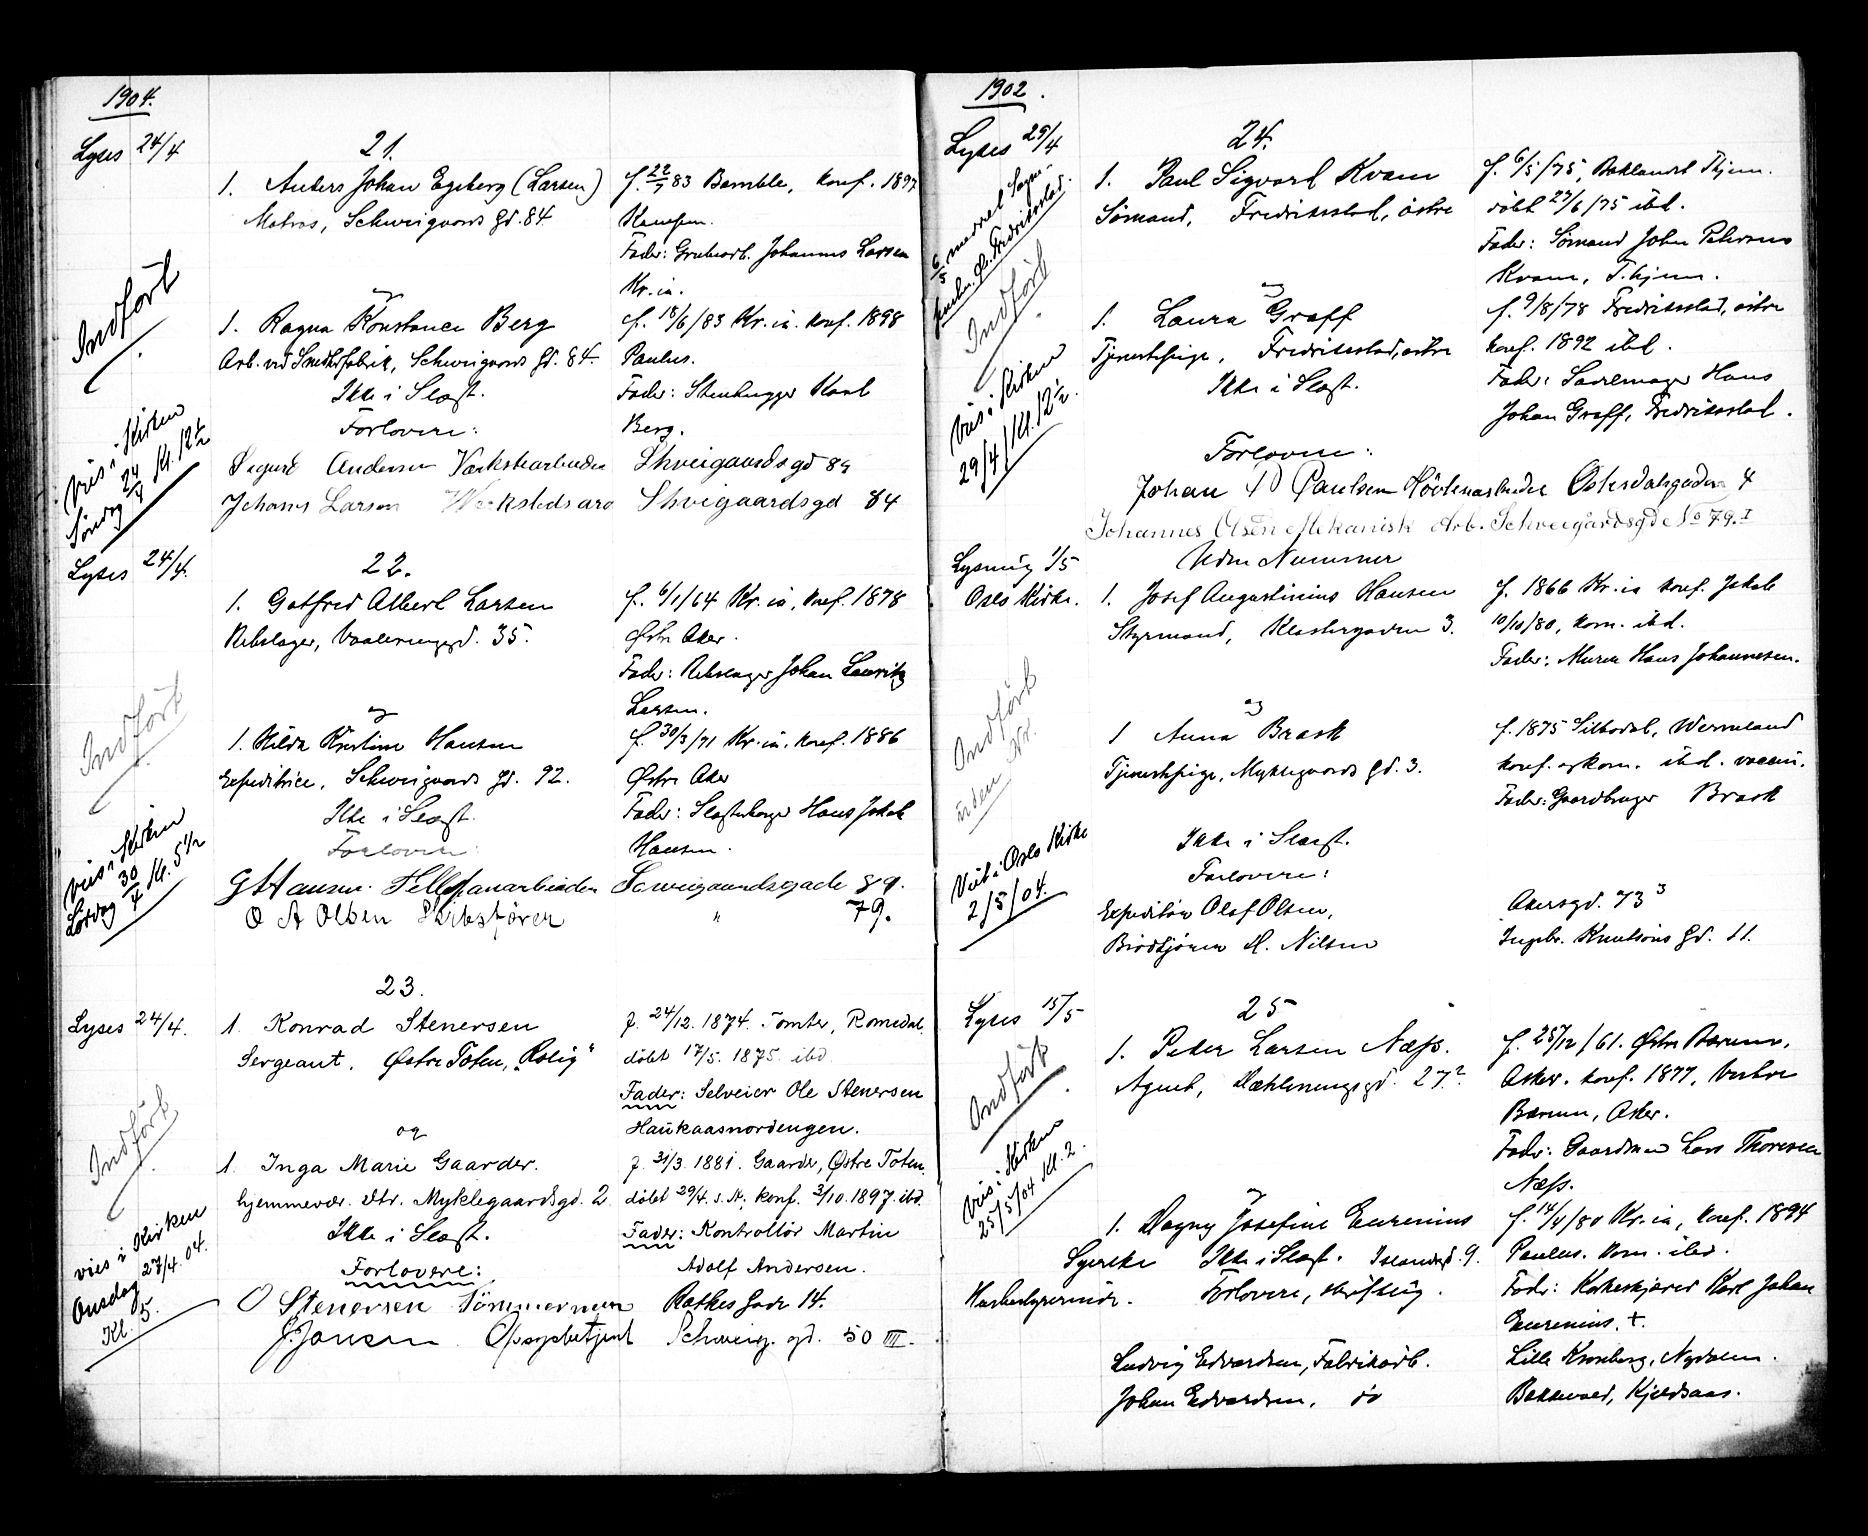 1904.
Lyses 24/4
21.
1. Anders Johan Egeberg (Larsen)
Matros, Schweigaards gd. 84
f. 22/7 83 Bamble, konf. 1897
Kampen.
Fader: Grubearb. Johannes Larsen
Kr.ia.
og
1. Ragna Konstance Berg
Arb. ved Smedkefabrik, Schweigaards gd. 84.
f. 18/6/83 Kr.ia. konf. 1898
Paulus.
Fader: Stenhugger Karl
Berg.
Ikke i Slægt.
Forlovere:
Sigurd Andersen Værkstearbeider Shveigaardsgd 84
Johans Larsen Shvigaardsgd 84
Indført
Vies i Kirken
Søndag 24/4 Kl. 12 1/2
Lyses 24/4.
22.
1. Gotfred Albert Larsen
Rebslager, Vaalerenggd. 35.
f. 6/1/64 Kr.ia, konf. 1878
Østre Aker.
Fader: Rebslager Johan Lauritz
Larsen.
og
1. Hilda Kristine Hansen
Expeditrice, Schweigaards gd. 92.
f. 30/3/71 Kr.ia. konf. 1886
Østre Aker
Fader: Slagterborger Hans Jakob
Hansen.
Ikke i Slægt.
Forlovere:
G Hansen. 89.
O A Olsen Skibsfører " 79.
Indført
Vies i Kirken
Lørdag 30/4 Kl. 5 1/2
23.
Lyses 24/4.
1. Konrad Stenersen
Sergeant. Østre Toten, „Rolig“
f. 24/12. 1874. Tomter, Romedal.
døbt 17/5. 1875. ibd.
Fader: Selveier Ole Stenersen
Haukaasnordengen.
og
1. Inga Marie Gaarder.
hjemmevær. dtr. Myklegaardsgd. 2
f. 31/3. 1881. Gaarder, Østre Toten.
døbt 29/4. s. A; konf. 3/10. 1897. ibd.
Fader: Kontrollør Martin
Adolf Andersen.
Ikke i Slægt.
Forlovere:
O Stenersen Tømmerman Ratkes Gade 14.
J. Jansen Opsynsbetjent Schweig. gd. 50 III.
Indført
vies i Kirken
Onsdag 27/4. 04.
Kl. 5.
1902.
Lyses 29/4
24.
1. Paul Sigvard Kvam
Sømand, Fredriksstad, østre
f. 6/5/75, Baklandet Thjem.
døbt 27/6/75 ibd.
Fader: Sømand John Petersens
Kvam, T.hjem.
og
1. Laura Graff
Tjenestepige, Fredriksstad, østre
f. 9/8/78 Fredriksstad, østre
konf. 1892 ibd.
Fader: Sadelmager Hans
Johan Graff, Fredriksstad.
Ikke i Slægt.
Forlovere:
Johan D Paulsen Høvlearbeider Østerdalsgaden 4
Johannes Olsen Mekanisk Arb. Schweigårdsgd No 79. I
Indført
Vies i Kirken
29/4/Kl. 12 1/2.
Lysning 1/5
Oslo Kirke.
Uden Nummer
1. Josef Augustinius Hansen
Styrmand, Klostergaden 3.
f. 1866 Kr.ia konf. Jakob
10/10/80, kom. ibd.
Fader: Murer Hans Johannesen.
og
1 Anna Brask
Tjenestepige, Myklegaards gd. 3.
f. 1875 Silbodal, Wermland
konf. og kom. ibd. vaccin.
Fader: Gaardbruger Brask
Ikke i Slægt.
Forlovere:
Expeditør Olaf Olsen, Akersgd. 73 3
Brødkjører H. Nilsen Ingebr. Knutsøns gd. 11.
Indført
uden Nr.
Viet i Oslo Kirke
2/5/04.
Lyses 15/5
25
1. Peder Larsen Næss.
Agent, Dæhleneng​sgd. 27.2.
f. 25/12/61. Østre Bærum,
Asker. konf. 1877, Vestre
Bærum, Asker.
Fader: Gaardman Lars Thoresen
Næss.
og
1. Dagny Josefine Eurenius
Syerske Ikke i Slægt. Islandsgd. 9.
f. 14/4/80 Kr.ia, konf. 1894
Paulus. kom. ibd.
Forlovere, skriftlig.
Fader: Korkeskjærer Karl Johan
Eurenius. †.
Ludvig Edvardsen, Fabrikarb. Lille Kronborg, Nydalen.
Johan Edvardsen, do Bakkevold, Kjelsaas.
Indført
Vies i Kirken
25/5/04 Kl. 2.